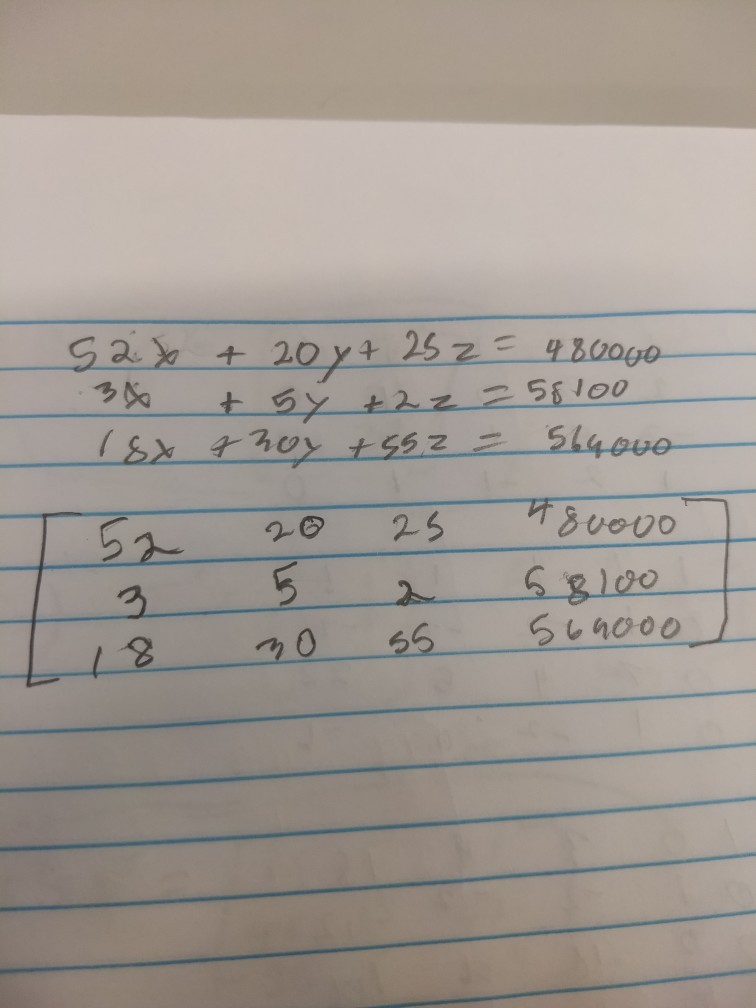 52x + 20y + 25z = 480000
3x + 5y + 2z = 58100
18x + 30y + 55z = 564000
52 20 25 480000
3 5 2 58100
18 30 55 564000